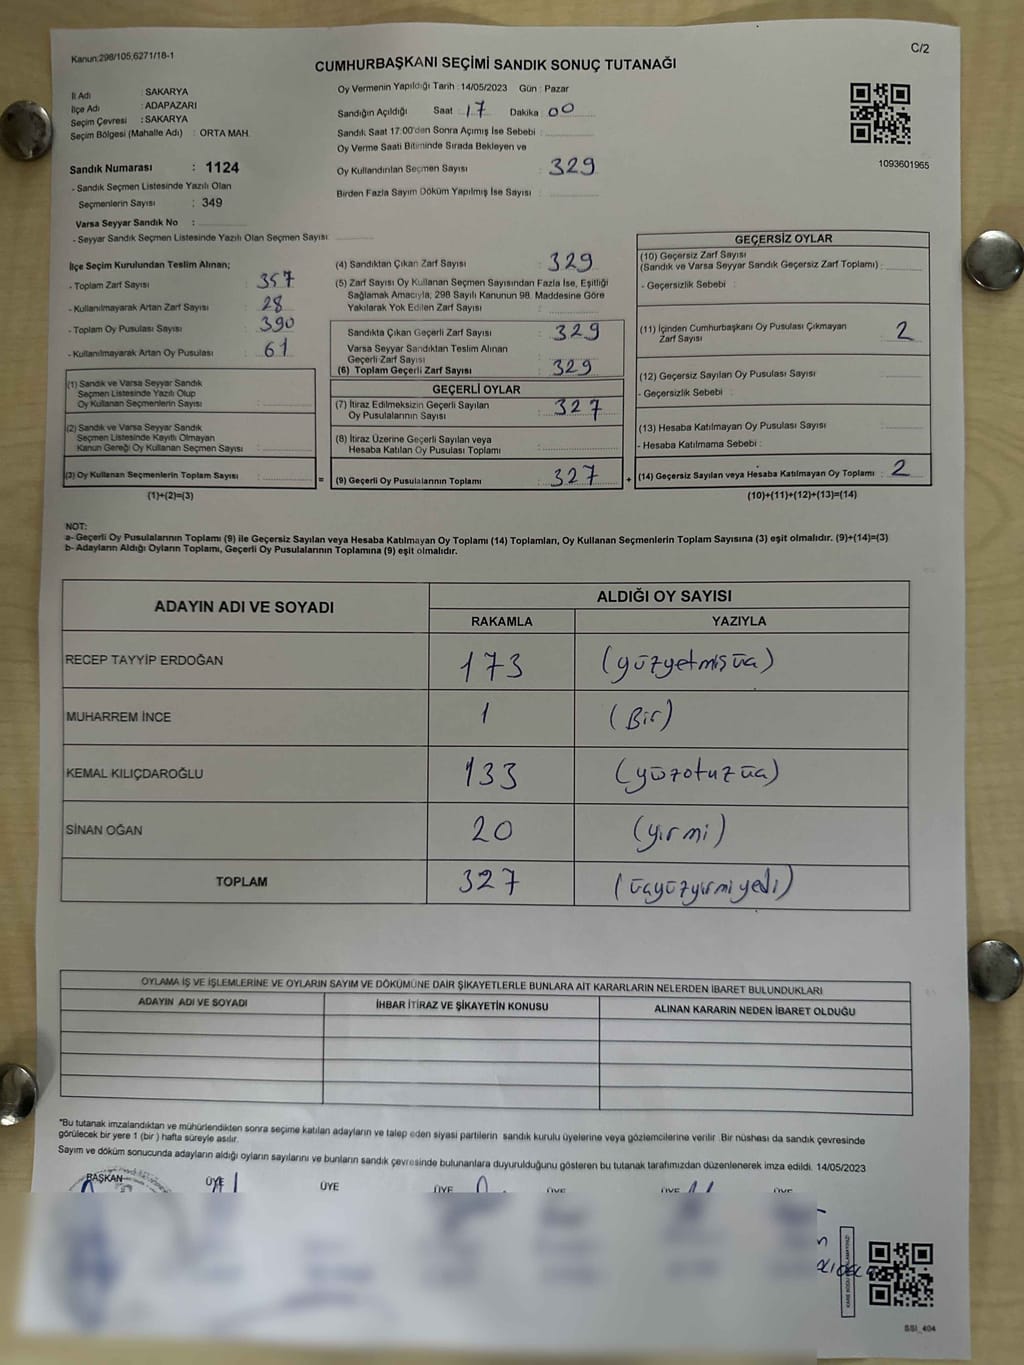 Kanun:298/105,6271/18-1
C/2
CUMHURBAŞKANI SEÇİMİ SANDIK SONUÇ TUTANAĞI
İl Adı : SAKARYA
İlçe Adı : ADAPAZARI
Seçim Çevresi : SAKARYA
Seçim Bölgesi (Mahalle Adı) : ORTA MAH.
Sandık Numarası : 1124
- Sandık Seçmen Listesinde Yazılı Olan
Seçmenlerin Sayısı : 349
Varsa Seyyar Sandık No :
- Seyyar Sandık Seçmen Listesinde Yazılı Olan Seçmen Sayısı:
Oy Vermenin Yapıldığı Tarih : 14/05/2023 Gün : Pazar
Sandığın Açıldığı Saat : 17 Dakika : 00
Sandık Saat 17:00'den Sonra Açımış İse Sebebi :
Oy Verme Saati Bitiminde Sırada Bekleyen ve
Oy Kullandırılan Seçmen Sayısı : 329
Birden Fazla Sayım Döküm Yapılmış İse Sayısı :
1093601965
İlçe Seçim Kurulundan Teslim Alınan;
- Toplam Zarf Sayısı : 357
- Kullanılmayarak Artan Zarf Sayısı : 28
- Toplam Oy Pusulası Sayısı : 390
- Kullanılmayarak Artan Oy Pusulası : 61
(1) Sandık ve Varsa Seyyar Sandık
Seçmen Listesinde Yazılı Olup
Oy Kullanan Seçmenlerin Sayısı :
(2) Sandık ve Varsa Seyyar Sandık
Seçmen Listesinde Kayıtlı Olmayan
Kanun Gereği Oy Kullanan Seçmen Sayısı :
(3) Oy Kullanan Seçmenlerin Toplam Sayısı :
(1)+(2)=(3)
(4) Sandıktan Çıkan Zarf Sayısı : 329
(5) Zarf Sayısı Oy Kullanan Seçmen Sayısından Fazla İse, Eşitliği
Sağlamak Amacıyla, 298 Sayılı Kanunun 98. Maddesine Göre
Yakılarak Yok Edilen Zarf Sayısı :
Sandıkta Çıkan Geçerli Zarf Sayısı : 329
Varsa Seyyar Sandıktan Teslim Alınan
Geçerli Zarf Sayısı :
(6) Toplam Geçerli Zarf Sayısı : 329
GEÇERLİ OYLAR
(7) İtiraz Edilmeksizin Geçerli Sayılan
Oy Pusulalarının Sayısı : 327
(8) İtiraz Üzerine Geçerli Sayılan veya
Hesaba Katılan Oy Pusulası Toplamı :
= (9) Geçerli Oy Pusulalarının Toplamı : 327 +
GEÇERSİZ OYLAR
(10) Geçersiz Zarf Sayısı
(Sandık ve Varsa Seyyar Sandık Geçersiz Zarf Toplamı) :
- Geçersizlik Sebebi :
(11) İçinden Cumhurbaşkanı Oy Pusulası Çıkmayan
Zarf Sayısı : 2
(12) Geçersiz Sayılan Oy Pusulası Sayısı :
- Geçersizlik Sebebi :
(13) Hesaba Katılmayan Oy Pusulası Sayısı :
- Hesaba Katılmama Sebebi :
(14) Geçersiz Sayılan veya Hesaba Katılmayan Oy Toplamı : 2
(10)+(11)+(12)+(13)=(14)
NOT:
a- Geçerli Oy Pusulalarının Toplamı (9) ile Geçersiz Sayılan veya Hesaba Katılmayan Oy Toplamı (14) Toplamları, Oy Kullanan Seçmenlerin Toplam Sayısına (3) eşit olmalıdır. (9)+(14)=(3)
b- Adayların Aldığı Oyların Toplamı, Geçerli Oy Pusulalarının Toplamına (9) eşit olmalıdır.
ADAYIN ADI VE SOYADI
ALDIĞI OY SAYISI
RAKAMLA YAZIYLA
RECEP TAYYİP ERDOĞAN 173 (yüzyetmişüç)
MUHARREM İNCE 1 (Bir)
KEMAL KILIÇDAROĞLU 133 (yüzotuzüç)
SİNAN OĞAN 20 (yirmi)
TOPLAM 327 (üçyüzyirmiyedi)
OYLAMA İŞ VE İŞLEMLERİNE VE OYLARIN SAYIM VE DÖKÜMÜNE DAİR ŞİKAYETLERLE BUNLARA AİT KARARLARIN NELERDEN İBARET BULUNDUKLARI
ADAYIN ADI VE SOYADI İHBAR İTİRAZ VE ŞİKAYETİN KONUSU ALINAN KARARIN NEDEN İBARET OLDUĞU
*Bu tutanak imzalandıktan ve mühürlendikten sonra seçime katılan adayların ve talep eden siyasi partilerin sandık kurulu üyelerine veya gözlemcilerine verilir .Bir nüshası da sandık çevresinde
görülecek bir yere 1 (bir ) hafta süreyle asılır.
Sayım ve döküm sonucunda adayların aldığı oyların sayılarını ve bunların sandık çevresinde bulunanlara duyurulduğunu gösteren bu tutanak tarafımızdan düzenlenerek imza edildi. 14/05/2023
BAŞKAN ÜYE ÜYE ÜYE ÜYE ÜYE ÜYE
SSI_404